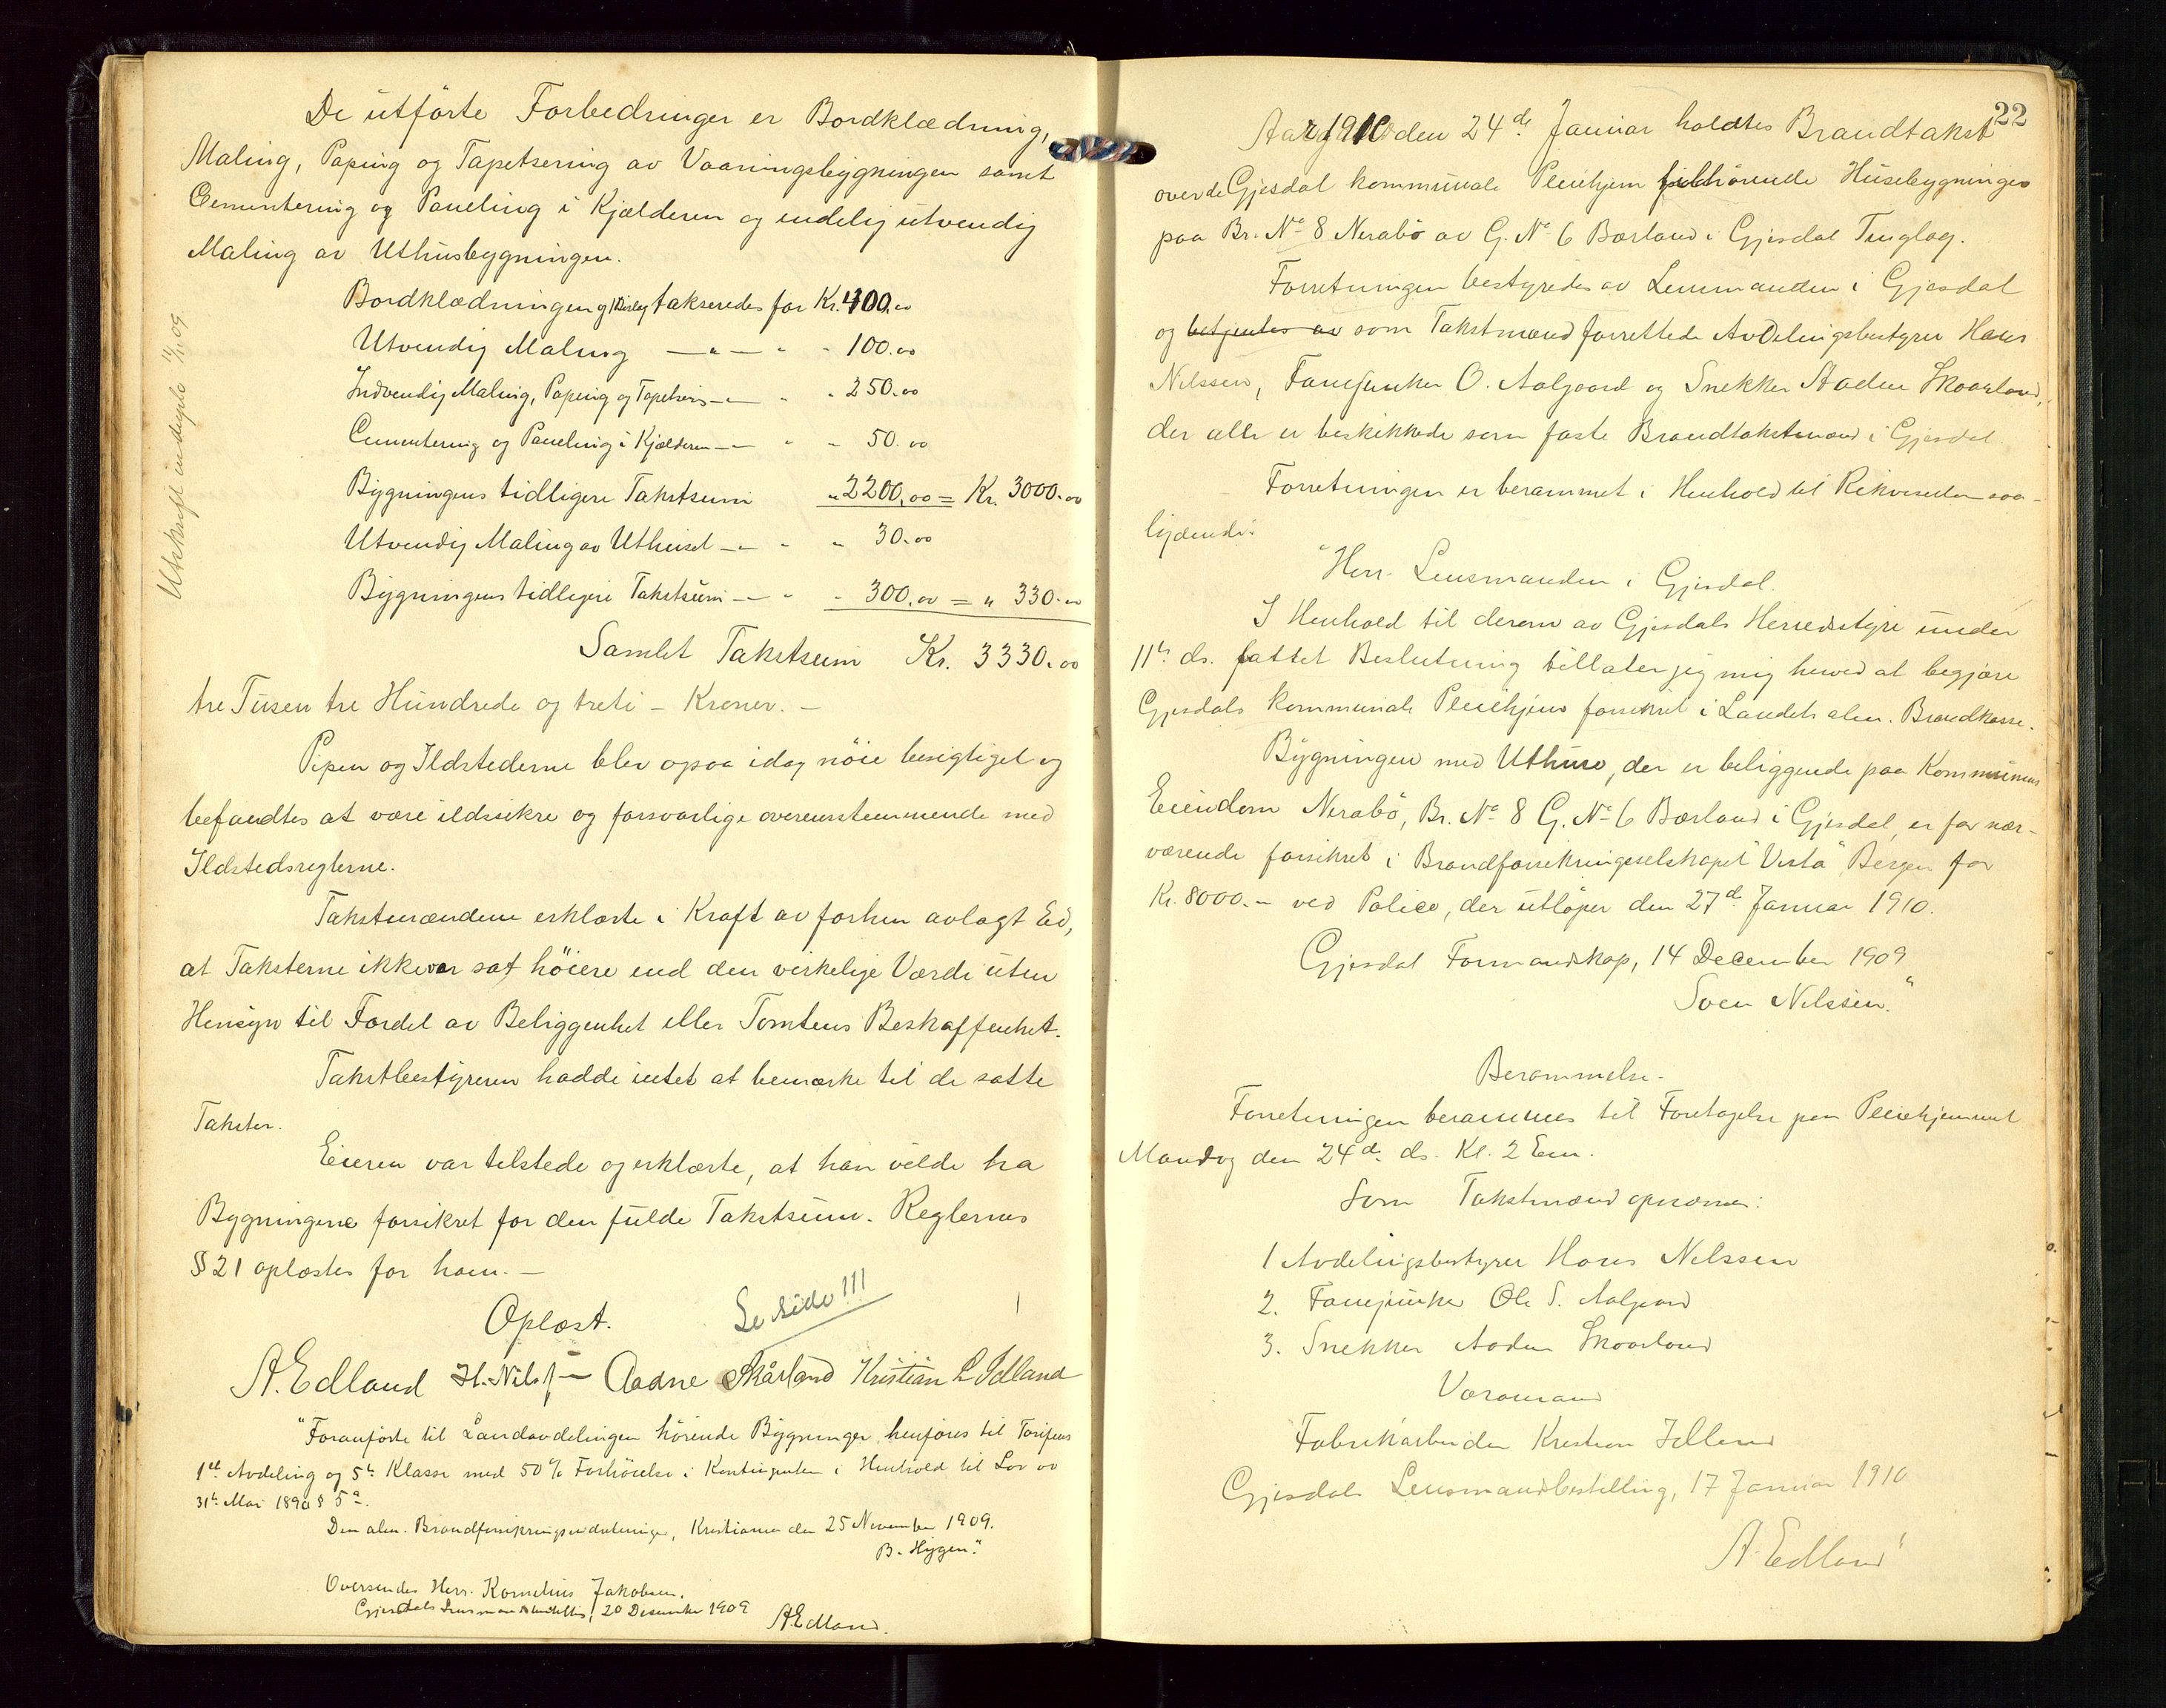 De utførte Forbedringer er Bordklædning,
Maling, Paping og Tapetsering av Vaaningsbygningen samt
Cementering og Paneling i Kjælderen og endelig utvendig
Maling av Uthusbygningen.
Bordklædningen og takseredes for Kr. 400.00
Utvendig Maling — " — " " 100.00
Indvendig Maling, Paping og Tapetsering — " " 250.00
Cementering og Paneling i Kjælderen — " " 50.00
Bygningens tidligere Takstsum " 2200,00 = Kr. 3000.00
Utvendig Maling av Uthuset — " " 30.00
Bygningens tidligere Takstsum — " " 300,00 = " 330.00
Samlet Takstsum Kr. 3330.00
tre Tusen tre Hundrede og treti – Kroner. –
Pipen og Ildstederne blev ogsaa idag nöie besigtiget og
befandtes at være ildssikre og forsvarlige overensstemmende med
Ildstedsreglerne.
Takstmændene erklærte i Kraft av forhen avlagt Ed,
at Taksterne ikke var sat höiere end den virkelige Værdi uten
Hensyn til Fordel av Beliggenhet eller Tomtens Beskaffenhet.
Takstbestyreren hadde intet at bemærke til de satte
Takster.
Eieren var tilstede og erklærte, at han vilde ha
Bygningene forsikret for den fulde Takstsum. Reglernes
§ 21 oplæstes for ham. —
Oplæst.
Se side 111
A. Edland H. Nilss– Aadne Skårland Kristian L Idland
"Foranførte til Landavdelingen hörende Bygninger henføres til Tarifens
1ste Avdeling og 5te Klasse med 50% Forhöielse i Kontingenten i Henhold til Lov av
31te Mai 1890 § 5a.
Den alm. Brandforsikringsindretning, Kristiania den 25 November 1909.
B. Hygen."
Oversendes Herr. Kornelius Jakobsen.
Gjesdals Lensmandsbestilling, 20 Desember 1909
A Edland.
Utskrift utstedt 11/10 09
22
Aar 1910 den 24de Januar holdtes Brandtakst
over de Gjesdal kommunale Pleiehjem tilhörende Husebygninger
paa Br. No 8 Nerabö av G. No 6 Bærland i Gjesdal Tinglag.
Forretningen bestyredes av Lensmanden i Gjesdal
og betjentes av som Takstmænd forrettede Avdelingsbestyrer Hans
Nilssen, Fanejunker O. Aalgaard og Snekker Aadne Skaarland,
der alle er beskikkede som faste Brandtakstmænd i Gjesdal.
Forretningen er berammet i Henhold til Rekvisition saa-
lydende:
"Herr. Lensmanden i Gjesdal.
I Henhold til derom av Gjesdals Herredsstyre under
11te ds. fattet Beslutning tillater jeg mig herved at begjære
Gjesdals kommunale Pleiehjem forsikret i Landets alm. Brandkasse.
Bygningen med Uthus, der er beliggende paa Kommunens
Eiendom Nerabö, Br. No 8 G. No 6 Bærland i Gjesdal, er for nær-
værende forsikret i Brandforsikringsselskapet "Vesta" Bergen for
Kr. 8000.– ved Police, der utlöper den 27de Januar 1910.
Gjesdal Formandskap, 14 December 1909
Sven Nilssen."
Berammelse.
Forretningen berammes til Foretagelse paa Pleiehjemmet
Mandag den 24de ds. Kl. 2 Em.
Som Takstmænd opnævnes:
1 Avdelingsbestyrer Hans Nilssen
2. Fanejunker Ole S. Aalgaard
3. Snekker Aadne Skaarland
Varamand
Fabrikarbeider Kristian Idland
Gjesdals Lensmandsbestilling, 17 Januar 1910
A. Edland"